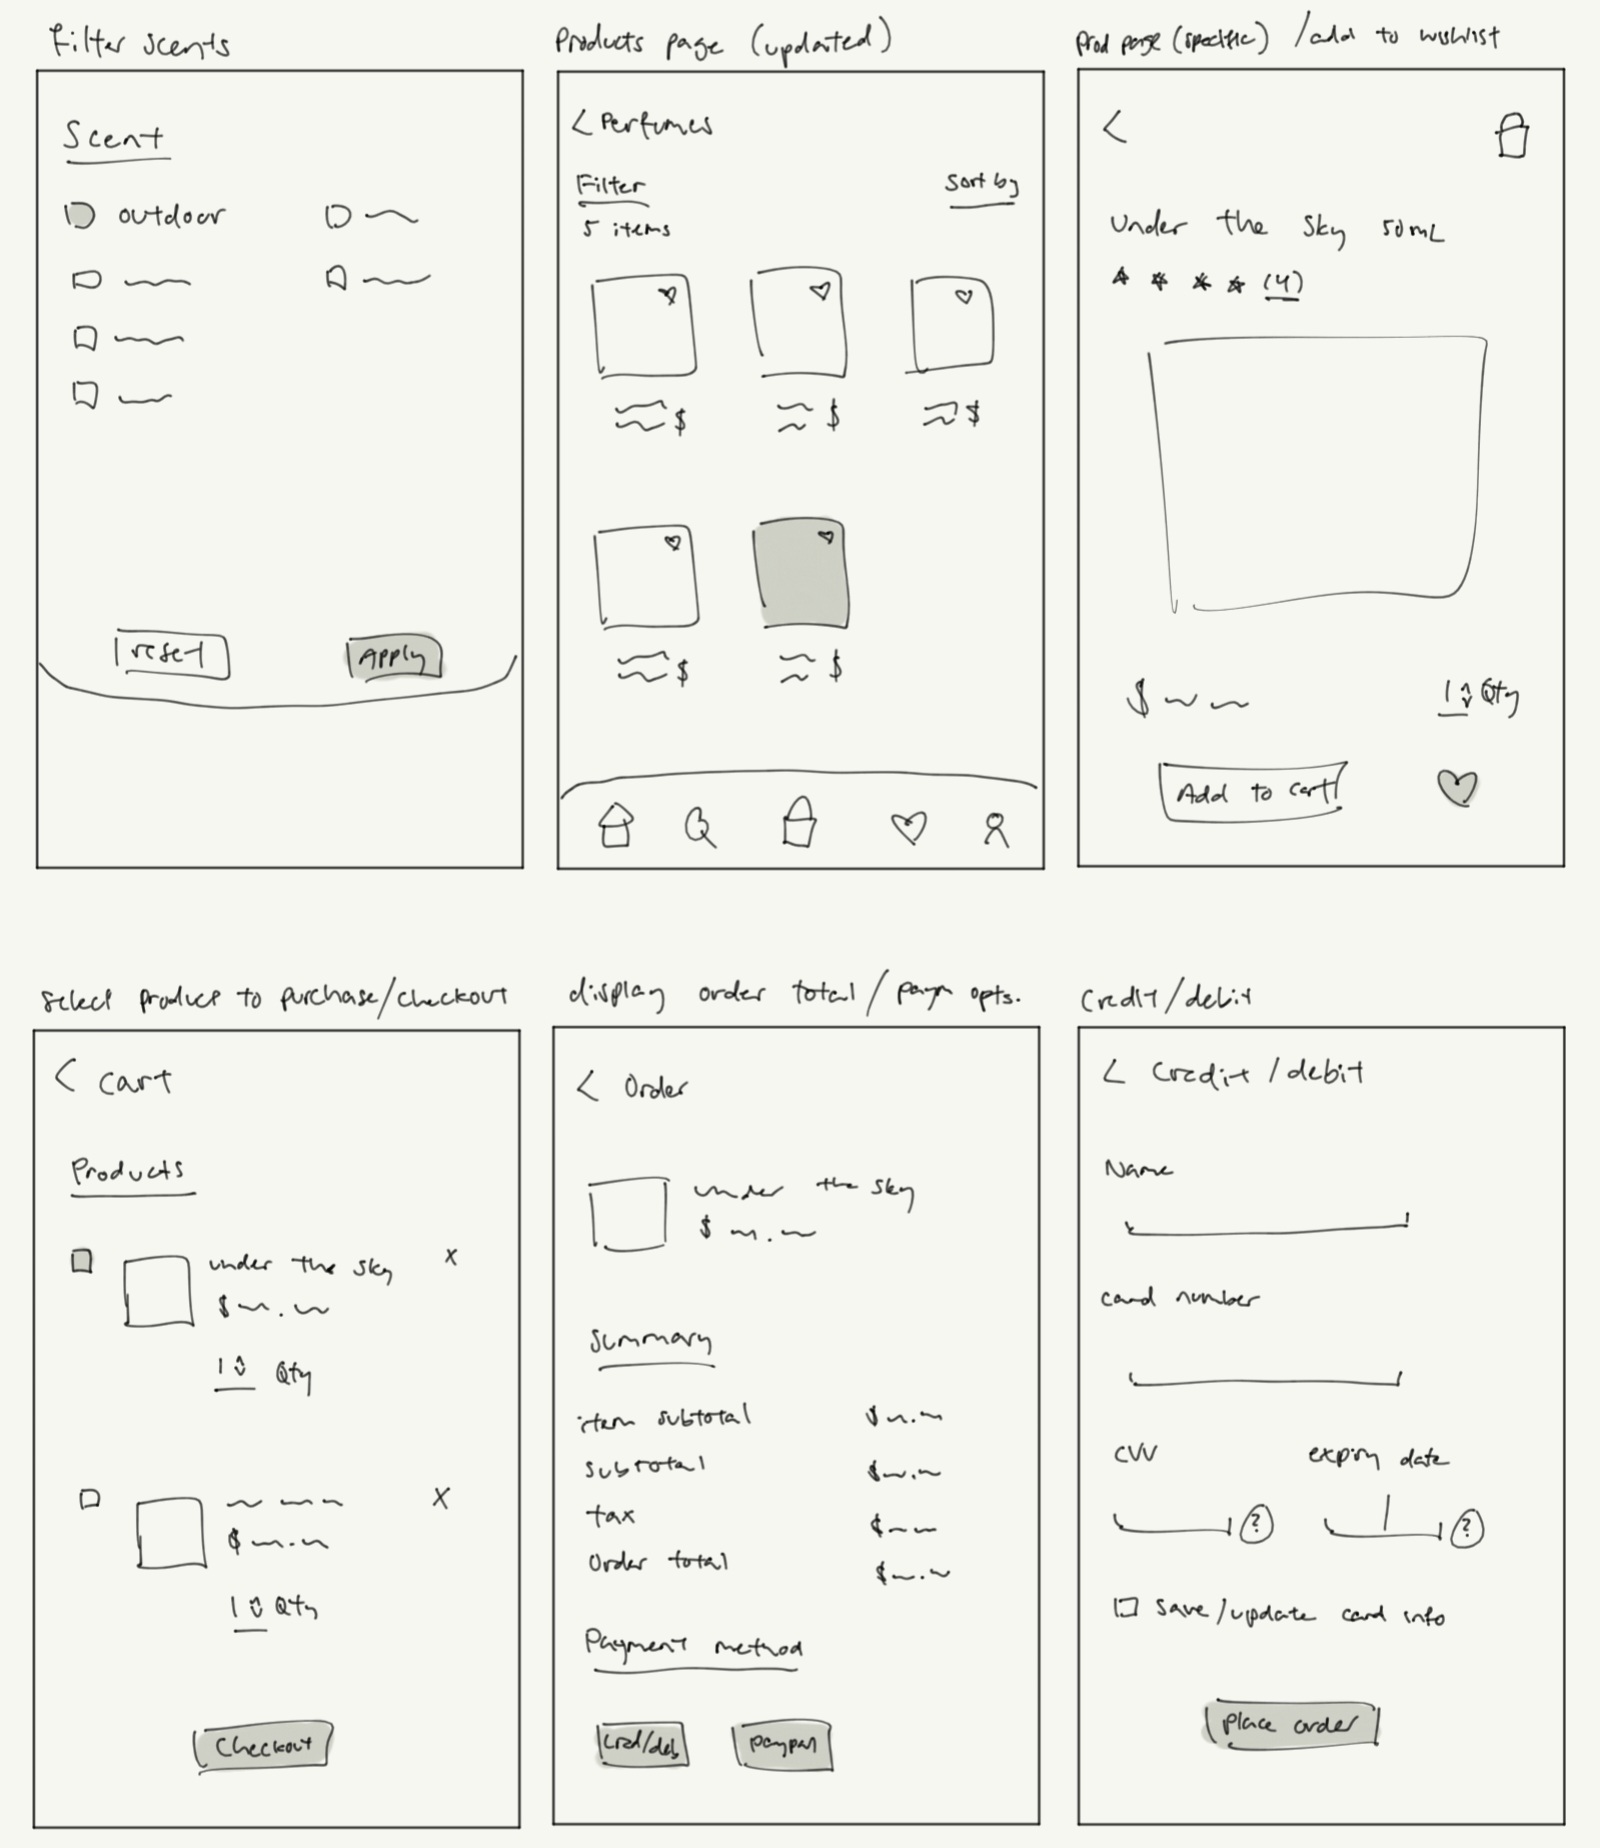 Filter scents
Scent
outdoor
reset
Apply
Products page (updated)
< Perfumes
Filter
Sort by
5 items
$
$
$
$
$
prod page (specific) / add to wishlist
<
Under the Sky 50mL
(4)
$
1 Qty
Add to cart
select product to purchase/checkout
< Cart
Products
under the sky
x
$ .
1 Qty
x
$ .
1 Qty
Checkout
display order total / paym opts.
< Order
under the sky
$ .
Summary
item subtotal $ .
subtotal $ .
tax $
Order total $ .
Payment method
cred/deb
paypal
Credit/debit
< Credit/debit
Name
card number
CVV
expiry date
?
?
save/update card info
Place order